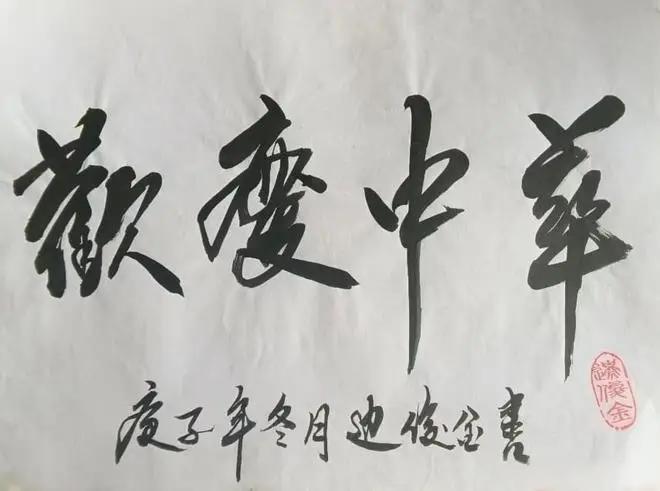 歡慶中華
庚子年冬月边俊金書